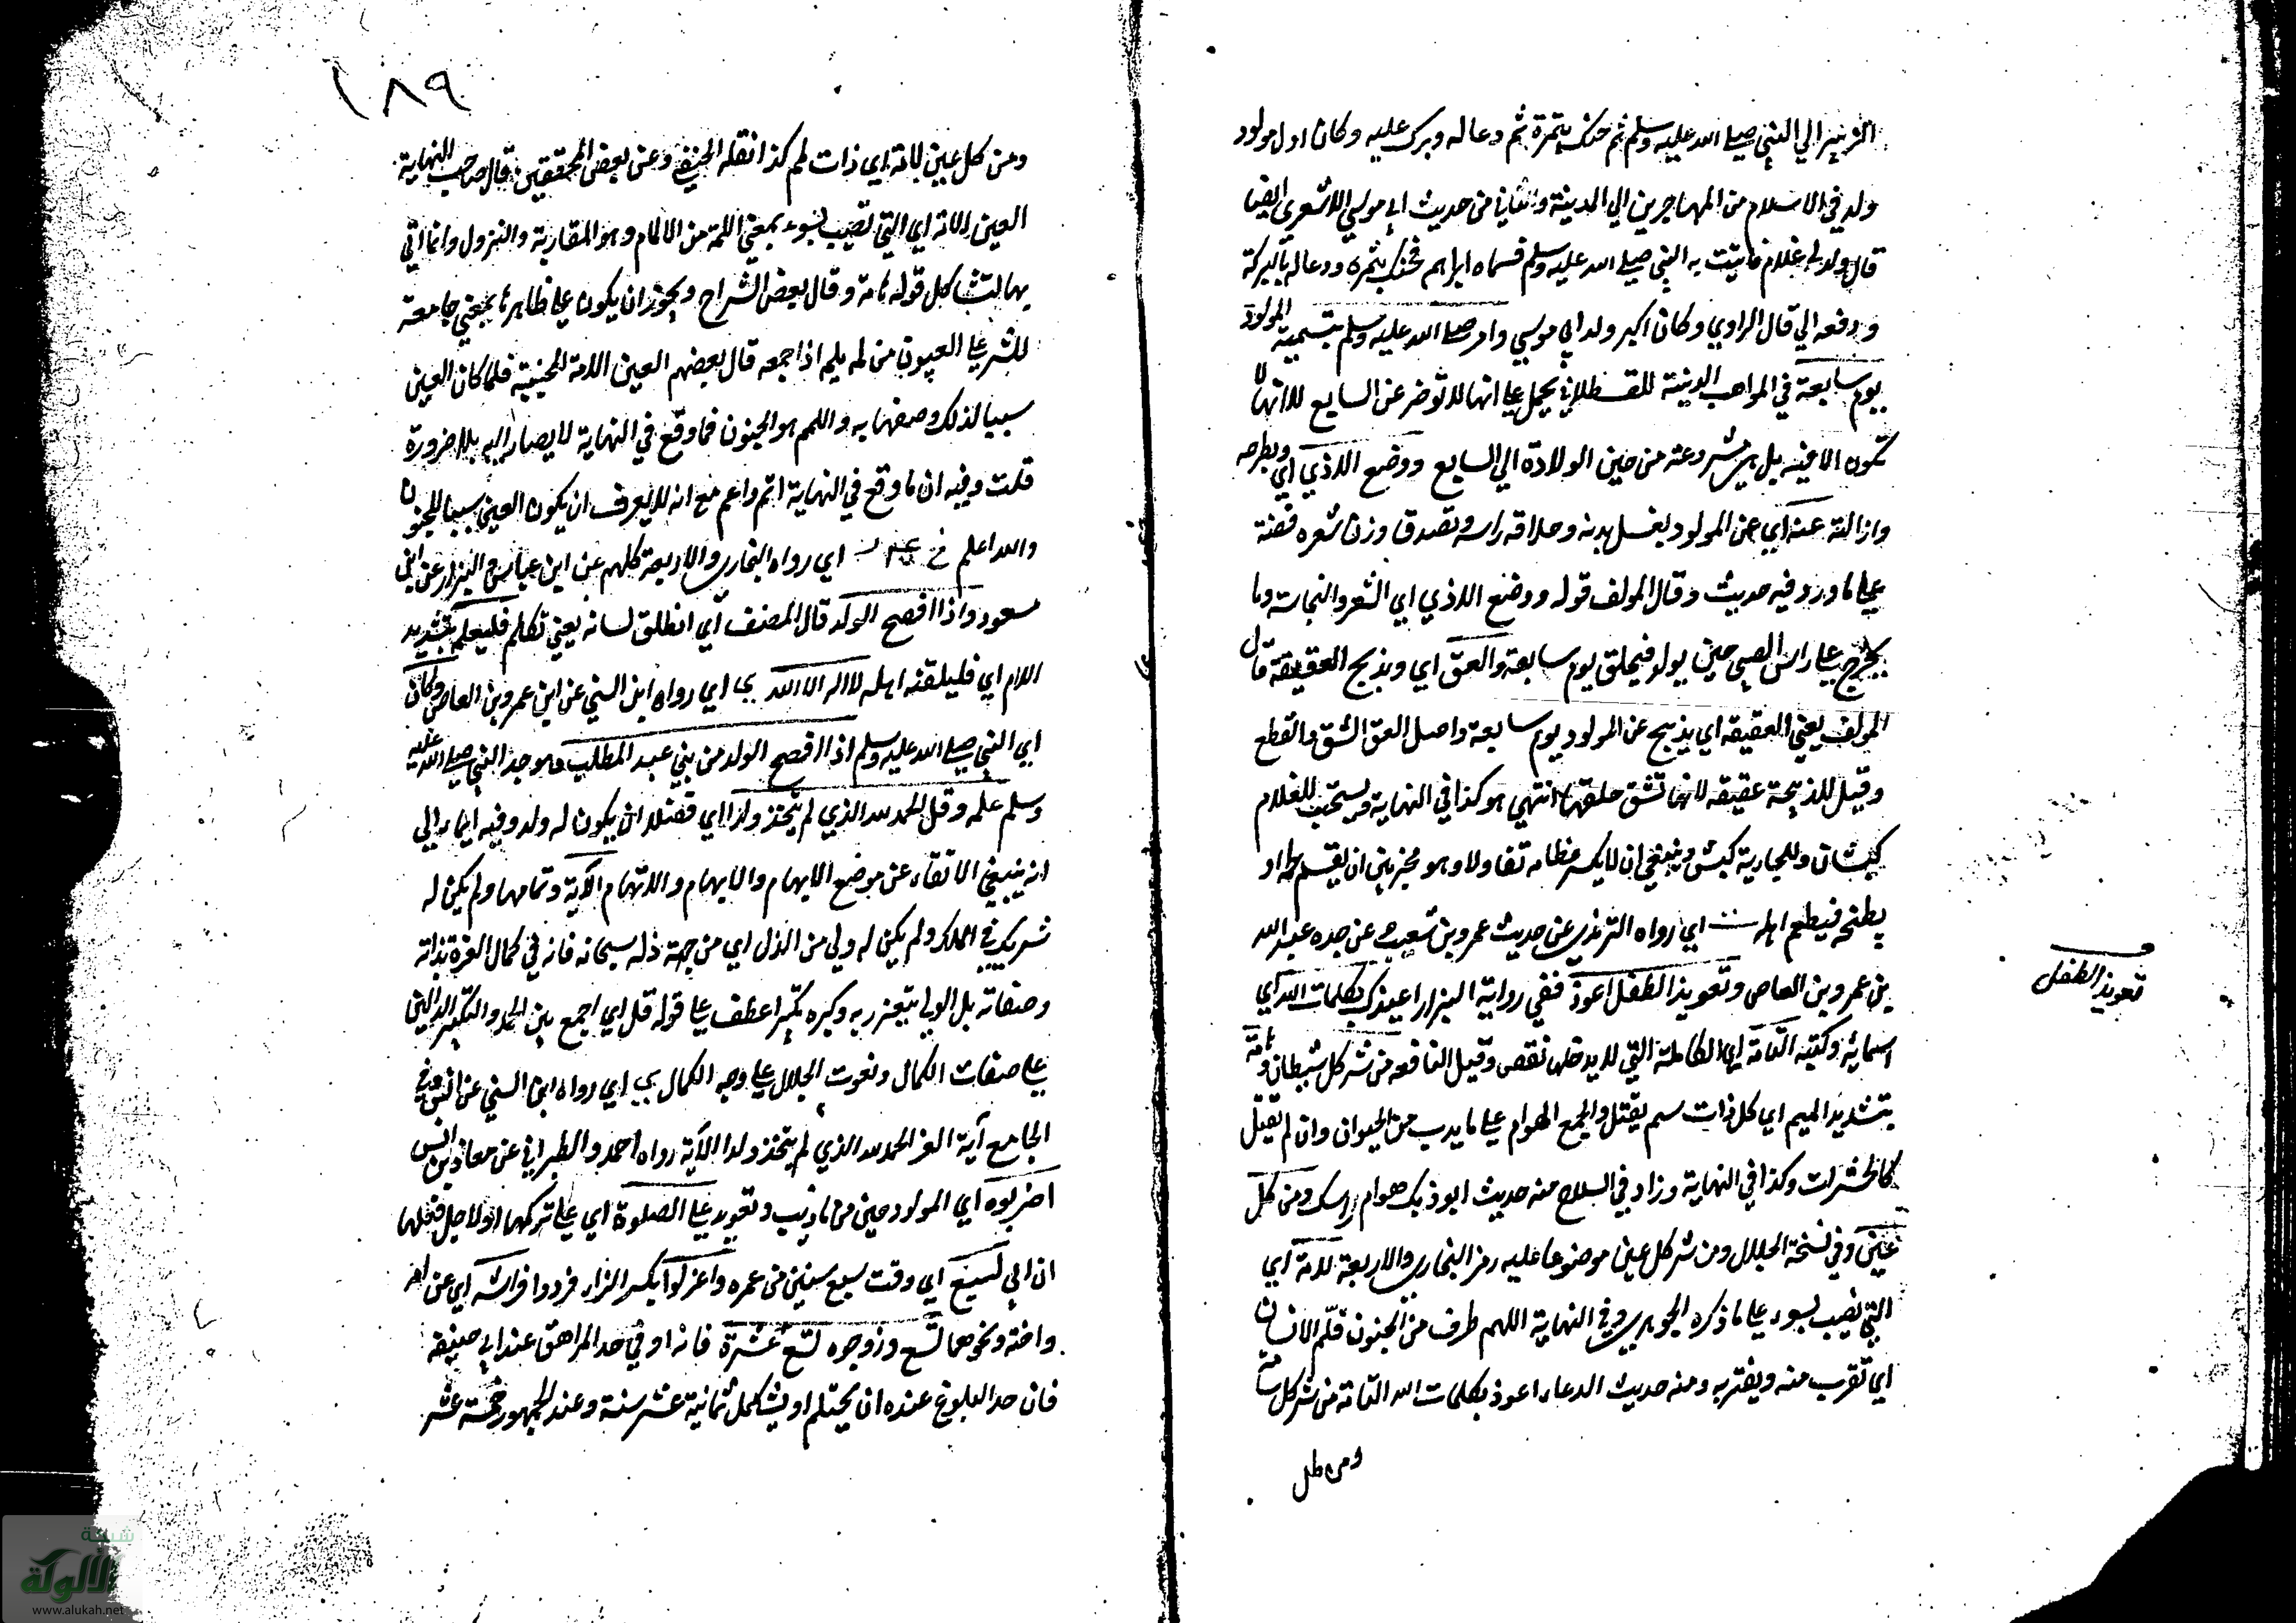 الزبير الي النبي صلي الله عليه وسلم ثم حنكه بتمرة ثم دعا له وبرك عليه وكان اول مولود
ولد في الاسلام من المهاجرين الي المدينة والثاني من حديث ابي موسي الاشعري ايضا
قال ولد لي غلام فاتيت به النبي صلي الله عليه وسلم فسماه ابراهم فحنكه بتمرة ودعا له بالبركة
ودفعه الي قال الراوي وكان اكبر ولد ابي موسي وامر صلي الله عليه وسلم بتسمية المولود
يوم سابعه في المواهب الدينة للقسطلاني يحمل علي انها لا توخر عن السابع لا انها لا
تكون الا فيه بل هي مشروعة من حين الولادة الي السابع ووضع الاذي اي ويطرحه
وازالته عنه اي عن المولود بغسل بدنه وحلاقه راسه وتصدق وزن شعره فضة
علي ما ورد فيه حديث وقال المولف قوله ووضع الاذي اي الشعر والنجاسة وما
يخرج علي راس الصبي حين يولد فيحلق يوم سابعه والعق اي ويذبح العقيقة قال
المولف يعني العقيقه اي يذبح عن المولود يوم سابعه واصل العق الشق والقطع
وقيل للذبيحة عقيقه لانها تشق حلقها انتهي هو كذا في النهاية ويستحب للغلام
كبشان وللجارية كبش وينبغي ان لا يكسر عظامه تفاولا وهو مخير بين ان يقسم لحمها او
يطبخه فيطعم اهله ت اي رواه الترمذي عن حديث عمرو بن شعيب عن جده عبد الله
بن عمرو بن العاص وتعويذ الطفل اعوذ ففي رواية البزار اعيذك بكلمات الله اي
اسمائه وكتبه التامة اي الكاملة التي لا يدخلها نقص وقيل النافعه من شر كل شيطان وهامة
بتشديد الميم اي كل ذات سم يقتل والجمع الهوام علي ما يدب من الحيوان وان لم يقتل
كالحشرات وكذا في النهاية وزاد في السلاح منه حديث ايوذيك هوام راسك ومن كل
عين وفي نسخة الجلال ومن شر كل عين موضوعا عليه رمز البخاري والاربعة لامة اي
التي تصيب بسوء علي ما ذكره الجوهري وفي النهاية اللمم طرف من الجنون فلم الانسان
اي تقرب منه ويعتريه ومنه حديث الدعاء اعوذ بكلمات الله التامة من شر كل سامة
ومن كل
تعويذ الطفل
١٨٩
ومن كل عين لامة اي ذات لمم كذا نقله الحنيفي وعن بعض المحققين قال صاحب النهاية
العين اللامة اي التي تصيب بسوء بمعني اللمة من الالمام وهو المقاربة والنزول وانما اتي
بها لتشاكل قوله تامة وقال بعض الشراح ويجوز ان يكون علي ظاهرها بمعني جامعة
للشر علي العيون من لمه يلمه اذا جمعه قال بعضهم العين اللامة المجنية فلما كان العين
سببا لذلك وصفها به واللمم هو الجنون فما وقع في النهاية لا يصار اليه بلا ضرورة
قلت وفيه ان ما وقع في النهاية اتم واعم مع انه لا يعرف ان يكون العين سببا للجنون
والله اعلم خ عه ر اي رواه البخاري والاربعة كلهم عن ابن عباس والبزار عن ابن
مسعود واذا افصح الولد قال المصنف اي انطلق لسانه يعني تكلم فليعلمه بتشديد
اللام اي فليلقنه اهله لا اله الا الله ي اي رواه ابن السني عن ابن عمرو بن العاص وكان
اي النبي صلي الله عليه وسلم اذا افصح الولد من بني عبد المطلب وهو جد النبي صلي الله عليه
وسلم علمه وقل الحمد لله الذي لم يتخذ ولدا اي فضلا ان يكون له ولد وفيه ايماء الي
انه ينبغي الاتقاء عن موضع الايهام والابهام والاتهام الآية وتمامها ولم يكن له
شريك في الملك ولم يكن له ولي من الذل اي من جهة ذله سبحانه فانه في كمال العزة بذاته
وصفاته بل الولي يتعزز به وكبره تكبيرا عطف علي قوله قل اي اجمع بين الحمد والتكبير الدالين
علي صفات الكمال ونعوت الجلال علي وجه الكمال ي اي رواه ابن السني عن انس وفي
الجامع آية العز الحمد لله الذي لم يتخذ ولدا الآية رواه احمد والطبراني عن معاذ بن انس
اضربوه اي المولود حين من تاديب وتعويد علي الصلوة اي علي تركها او لاجل فعلها
ان ابي لسبع اي وقت سبع سنين من عمره واعزلوا بكسر الزاء فردوا فراشه اي عن امه
واخته ونحوهما لتسع وزوجوه لتسع عشرة فانه اوفي حد المراهق عند ابي حنيفة
فان حد البلوغ عنده ان يحتلم او يستكمل ثمانية عشر سنة وعند الجمهور خمسة عشر
شبكة
الألوكة
www.alukah.net